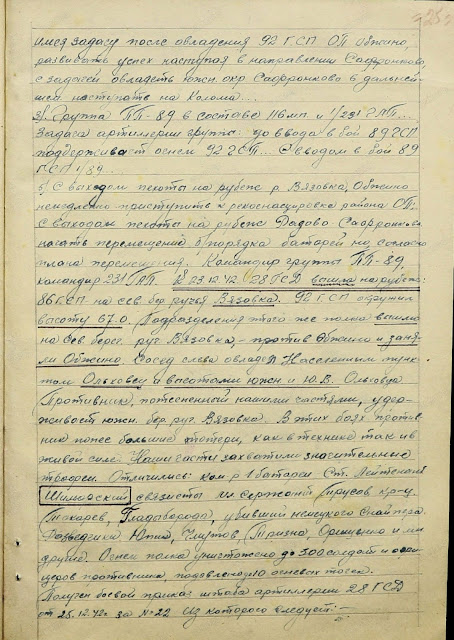 имея задачу после овладения 92 ГСП ОП Обжино,
развивать успех наступая в направлении Сафронково,
с задачей овладеть южн. окр Сафронково в дальней-
шем наступать на Холома...
Группа ПП-89 в составе 116 мп. и 1/231 ГАП...
Задача артиллерии группы: до ввода в бой 89 ГСП
поддерживает огнем 92 ГСП... С вводом в бой 89
ГСП
С выходом пехоты на рубеж р Вязовка, Обжино
немедленно приступить к рекогносцировке района ОП.
С выходом пехоты на рубеж Дедово-Сафронково
начать перемещение б/порядка батарей но, согласно
плана перемещения. Командир группы ПП-89,
командир 231 ГАП. К 23.12.42 28 ГСД вышла на рубеж:
86 ГСП на сев. бер ручья Вязовка. 92 ГСП окружил
высоту 67.0. Подразделения этого-же полка вышли
на Сев. берег. руч. Вязовка, - против Обжино и заня-
ли Обжино. Сосед слева овладел Населенным пунк-
том Ольховец и высотами южн. и Ю.В. Ольховца
Противник, потесненный нашими частями, удер-
живает южн. бер. руч. Вязовка. В этих боях против-
ник понес большие потери, как в технике так и в
живой силе. Наши части захватили значительные
трофеи. Отличились: ком-р 1 батареи Ст. Лейтенант
Шиманский связисты мл сержант Трусов кр-ц.
Токарев, Гладобород, убивший немецкого снайпера.
Разведчики Юппа, Глутов, Тризно, и мн
другие. Огнем полка уничтожено до 500 солдат и офи-
церов противника, подавлено 10 огневых точек.
Получен боевой приказ штаба артиллерии 28 ГСД
от 25.12.42г за № 22 Из которого следует:-